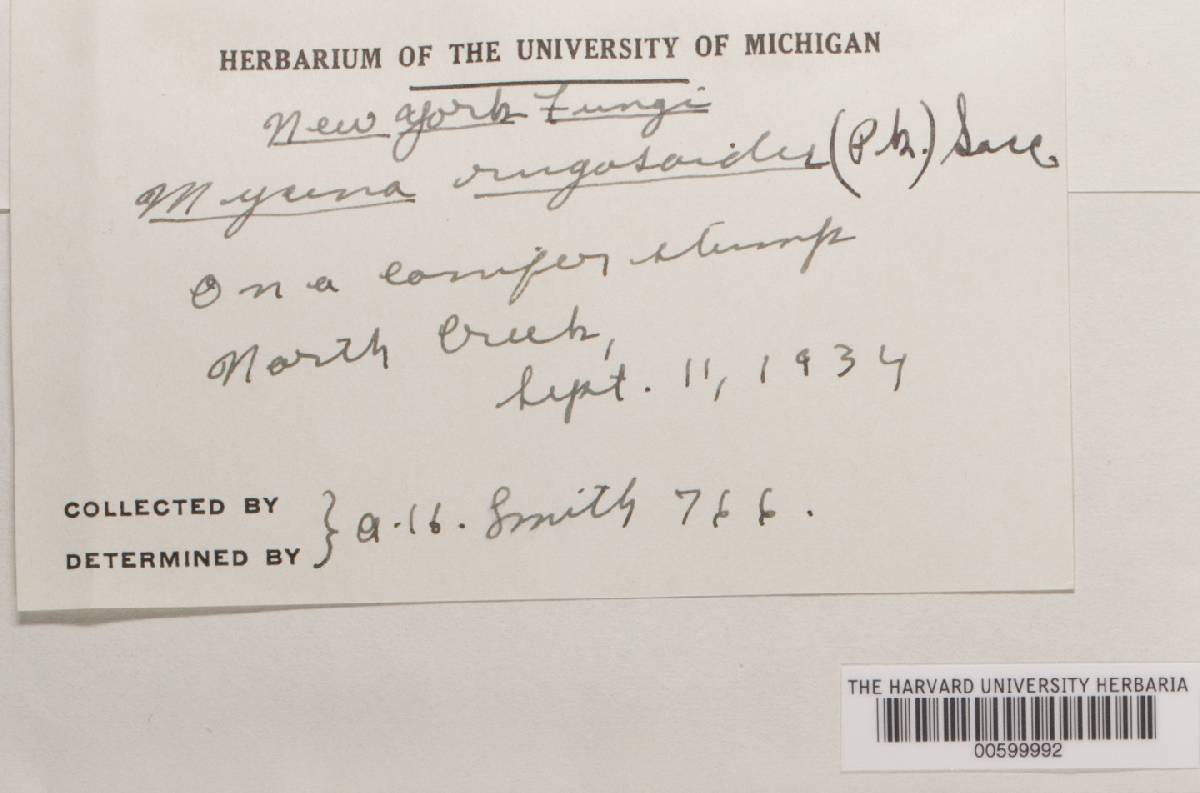 HERBARIUM OF THE UNIVERSITY OF MICHIGAN
New York Fungi
Mycena rugosoides (Pk.) Sacc.
On a conifer stump
North Creek,
Sept. 11, 1934
COLLECTED BY
DETERMINED BY } A.H. Smith 766.
THE HARVARD UNIVERSITY HERBARIA
00599992